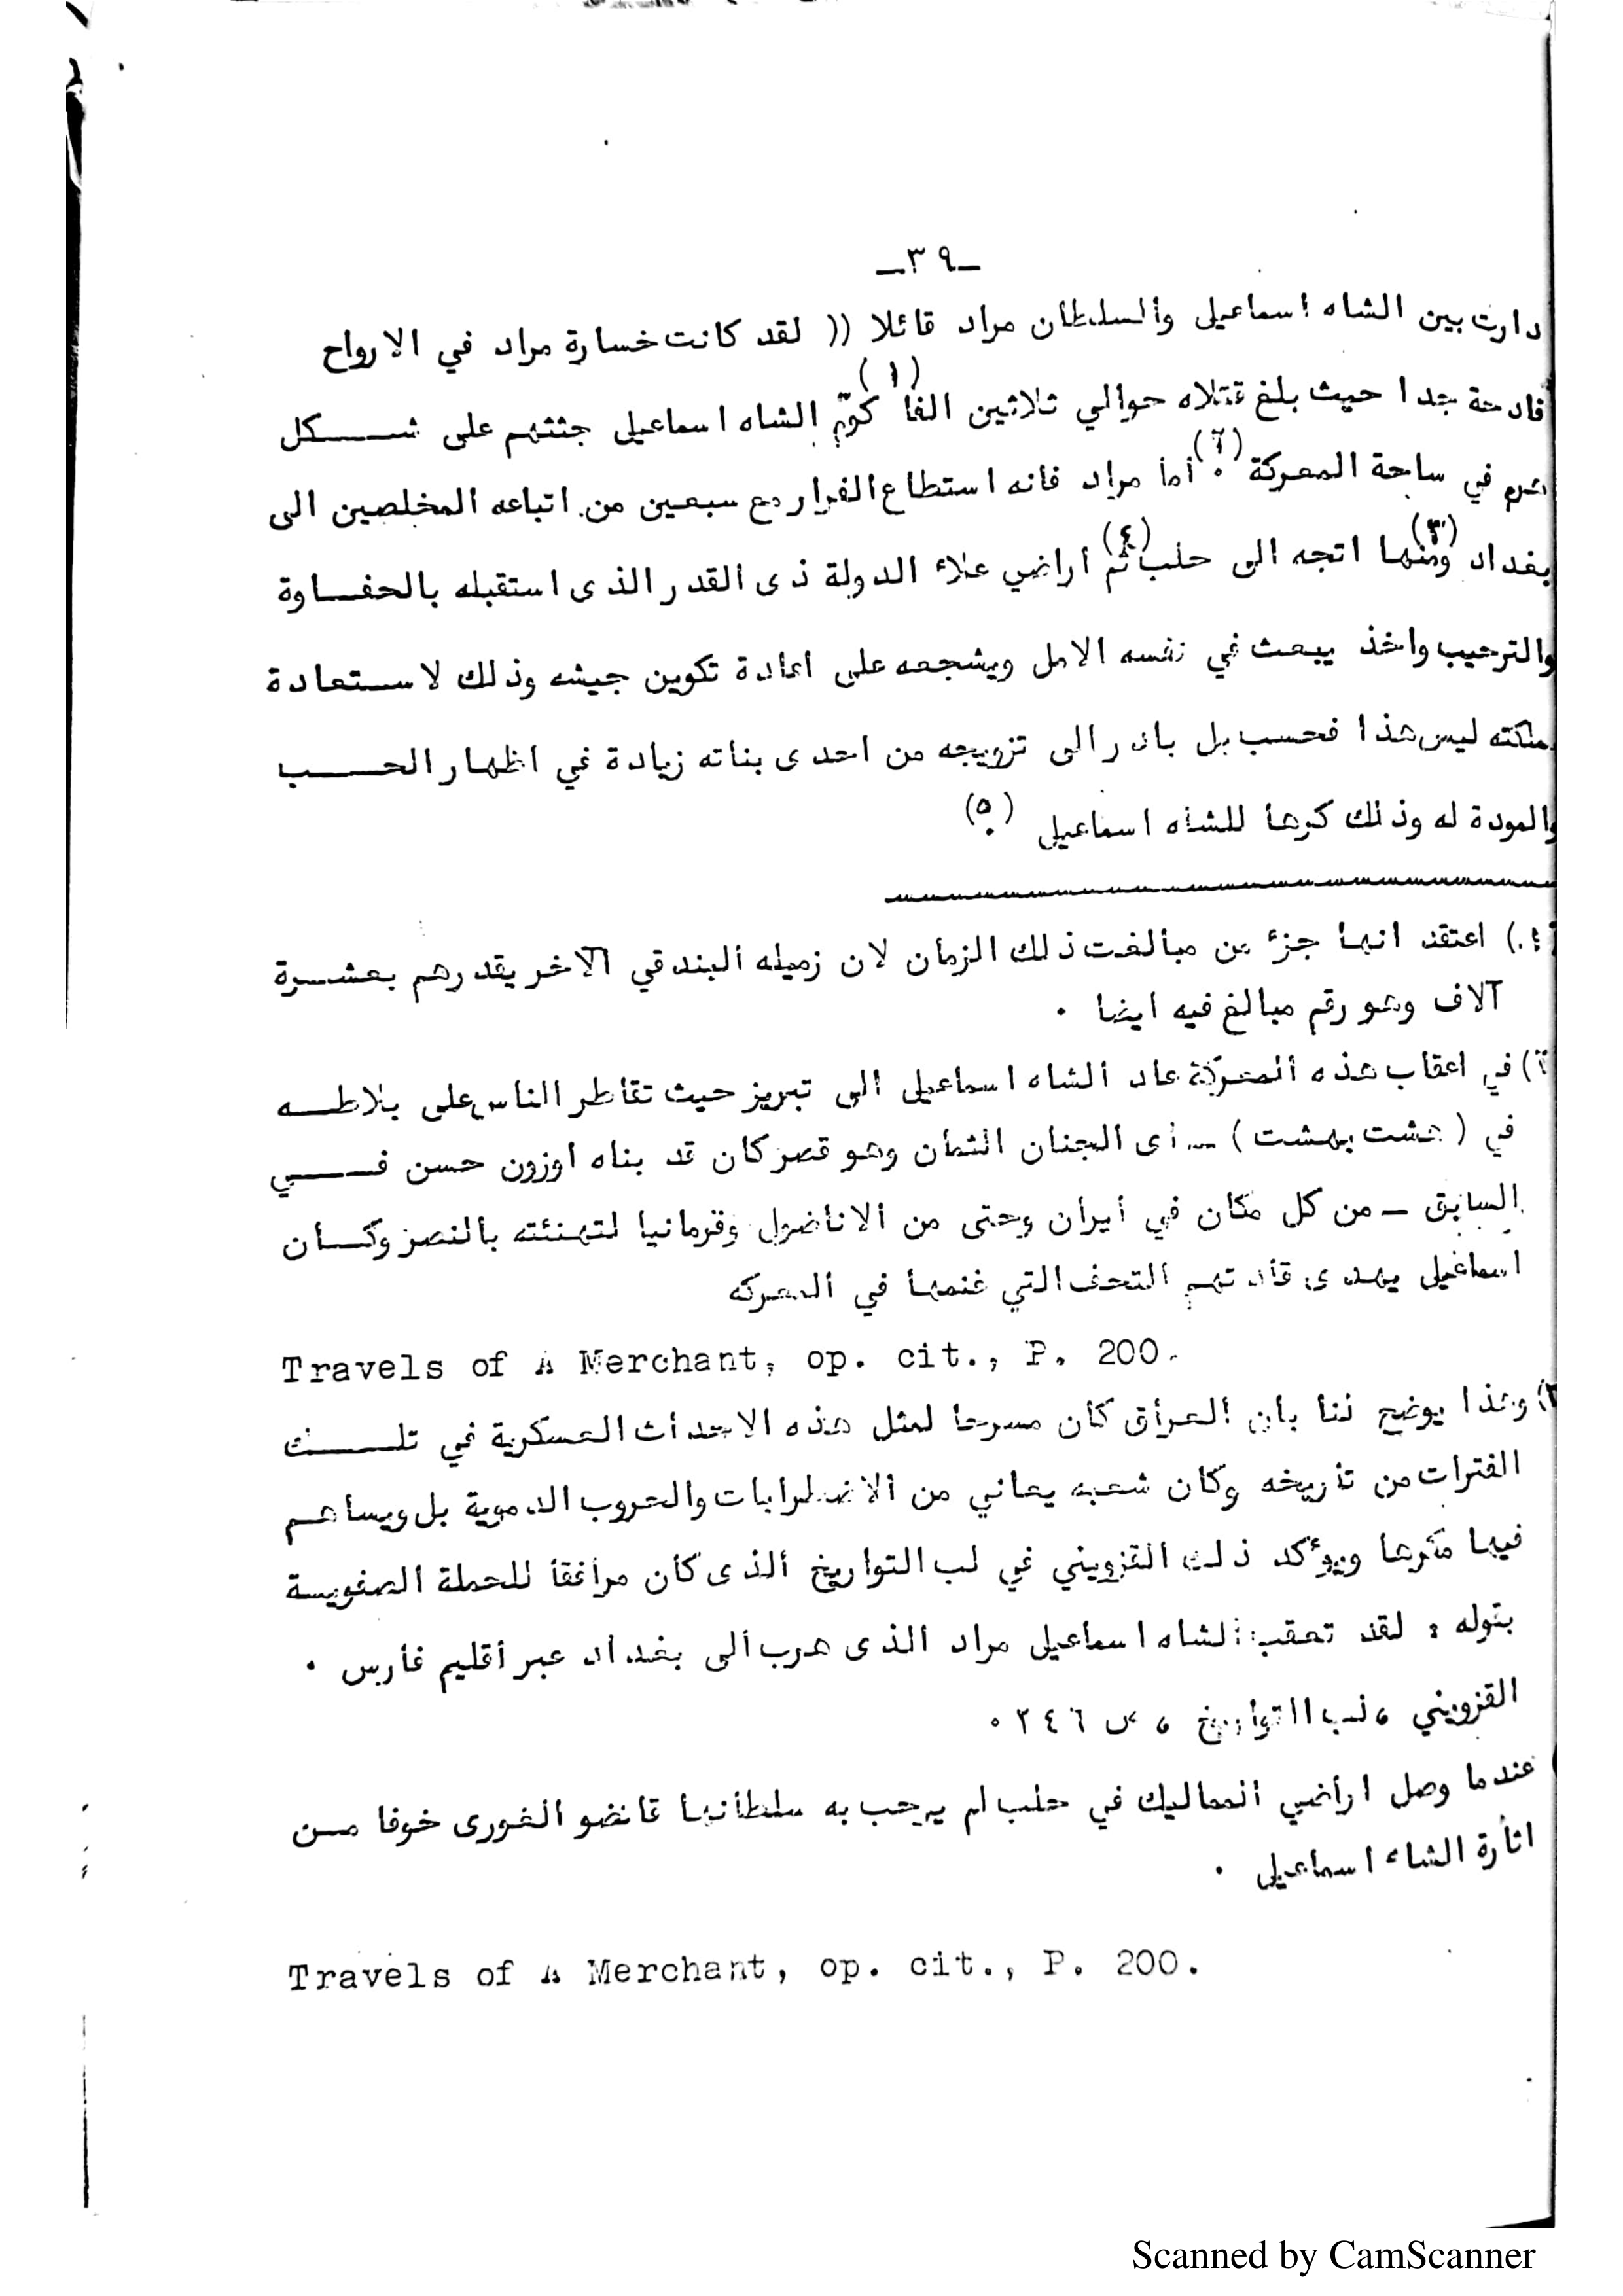 -٣٩-
دارت بين الشاه اسماعيل والسلطان مراد قائلا (( لقد كانت خسارة مراد في الارواح
فادحة جدا حيث بلغ قتلاه حوالي ثلاثين الفا (١) كوّم الشاه اسماعيل جثثهم على شـــكل
هرم في ساحة المعركة (٢). أما مراد فانه استطاع الفرار مع سبعين من اتباعه المخلصين الى
بغداد (٣) ومنها اتجه الى حلب (٤) ثم أراضي علاء الدولة ذى القدر الذى استقبله بالحفـــاوة
والترحيب واخذ يبعث في نفسه الامل ويشجعه على اعادة تكوين جيشه وذلك لاستعادة
ملكته ليس هذا فحسب بل بادر الى تزويجه من احدى بناته زيادة في اظهار الحـــب
والمودة له وذلك كرها للشاه اسماعيل (٥).
(١) اعتقد انها جزء من مبالغت ذلك الزمان لان زميله البندقي الآخر يقدرهم بعشـــرة
آلاف وهو رقم مبالغ فيه ايضا .
(٢) في اعقاب هذه المعركة عاد الشاه اسماعيل الى تبريز حيث تقاطر الناس على بلاطـــه
في ( هشت بهشت ) ـ أى الجنان الثمان وهو قصر كان قد بناه اوزون حسن فـــي
السابق ـ من كل مكان في أيران وحتى من الاناضول وقرمانيا لتهنئته بالنصر وكـــان
اسماعيل يهدى قادتهم التحف التي غنمها في المعركه
Travels of A Merchant, op. cit., P. 200.
(٣) وهذا يوضح لنا بان العراق كان مسرحا لمثل هذه الاحداث العسكرية في تلـــك
الفترات من تاريخه وكان شعبه يعاني من الاضطرابات والحروب الدموية بل ويساهـم
فيها مكرها ويؤكد ذلك القزويني في لب التواريخ الذى كان مرافقا للحملة الصفويـة
بقوله : لقد تعقب الشاه اسماعيل مراد الذى هرب الى بغداد عبر أقليم فارس .
القزويني ، لب التواريخ ، ص ٢٤٦ .
عندما وصل اراضي المماليك في حلب لم يرحب به سلطانها قانضو الغورى خوفا مـــن
اثارة الشاه اسماعيل .
Travels of A Merchant, op. cit., P. 200.
Scanned by CamScanner